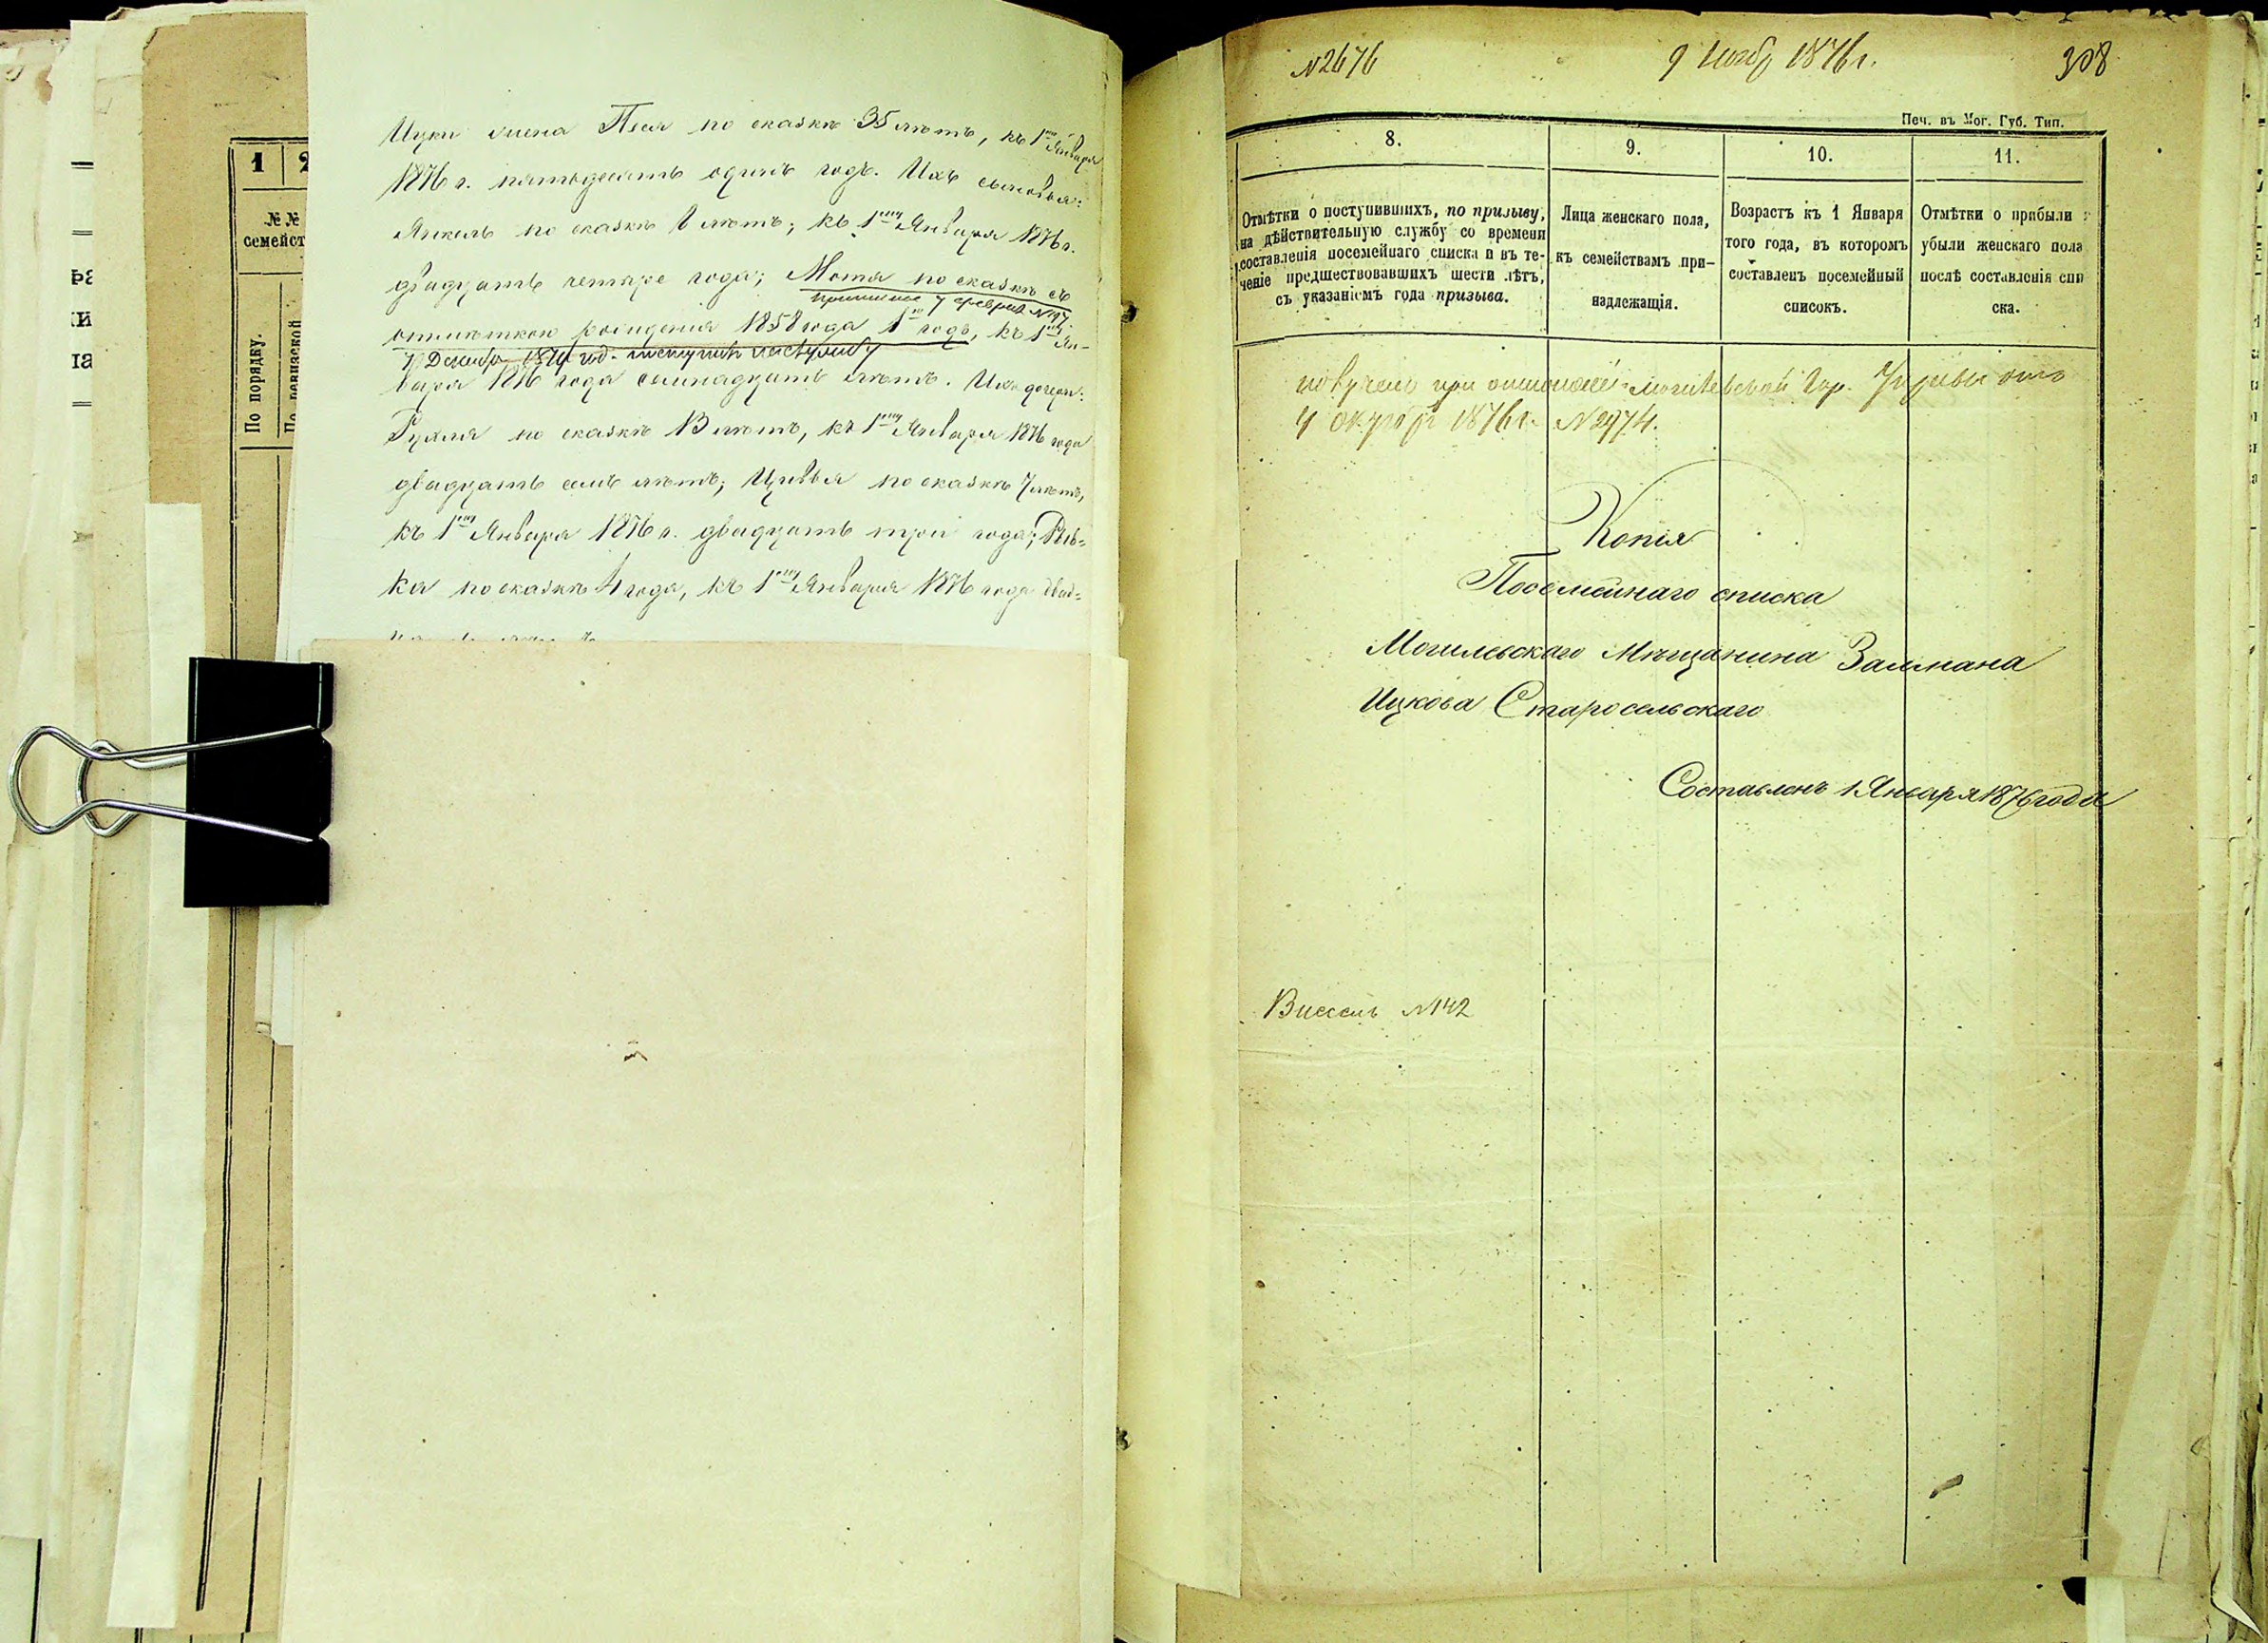 ьа
и
ıа
1 2
№№
семейст
По порядку.
По ревизской
Ицки жена Песя по сказкѣ 35 лѣтъ, къ 1му Января
1876 г. пятьдесятъ одинъ годъ. Ихъ сыновья:
Янкель по сказкѣ 8 лѣтъ; къ 1му Января 1876 г.
двадцать четыре года; Мотя по сказкѣ съ
7 февраля №197
отмѣткою рожденія 1858 года 1го годъ, къ 1му Ян-
7 Декабря 1874 год.
варя 1876 года семнадцать лѣтъ. Ихъ дочери:
Рухля по сказкѣ 13 лѣтъ, къ 1му Января 1876 года
двадцать семь лѣтъ; Цивья по сказкѣ 7 лѣтъ,
къ 1му Января 1876 г. двадцать три года; Рив=
ка по сказкѣ 4 года, къ 1му Января 1876 года двад=
№2676
9 Нояб 1876 г.
308
Печ. въ Мог. Губ. Тип.
8. 9. 10. 11.
Отмѣтки о поступившихъ, по призыву,
на дѣйствительную службу со времени
составленія посемейнаго списка и въ те-
ченіе предшествовавшихъ шести лѣтъ,
съ указаніемъ года призыва.
Лица женскаго пола,
къ семействамъ при-
надлежащія.
Возрастъ къ 1 Января
того года, въ которомъ
составленъ посемейный
списокъ.
Отмѣтки о прибыли
убыли женскаго пола
послѣ составленія спи
ска.
получено при отношеніи Могилевской Гор. Управы отъ
4 Октября 1876 г. №2974.
Копія
Посемейнаго списка
Могилевскаго Мѣщанина Залмана
Ицкова Старосельскаго
Составленъ 1 Января 1876 года
№142